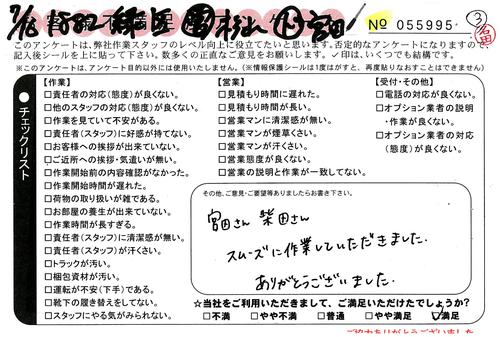 7/18
№ 055995
③
このアンケートは、弊社作業スタッフのレベル向上に役立てたいと思います。否定的なアンケートになりますので
記入後シールを上に貼って下さい。数多くの正直なご意見をお願いします。✓印は、いくつでも結構です。
※このアンケートは、アンケート目的以外には使用いたしません。(※情報保護シールは1度はがすと、再度貼りなおすことはできません)
●チェックリスト
【作業】
□責任者の対応(態度)が良くない。
□他のスタッフの対応(態度)が良くない。
□作業を見ていて不安がある。
□責任者(スタッフ)に好感が持てない。
□お客様への挨拶が出来ていない。
□ご近所への挨拶・気遣いが無い。
□作業開始前の内容確認がなかった。
□作業開始時間が遅れた。
□荷物の取り扱いが雑である。
□お部屋の養生が出来ていない。
□作業時間が長すぎる。
□責任者(スタッフ)に清潔感が無い。
□責任者(スタッフ)が汗くさい。
□トラックが汚い。
□梱包資材が汚い。
□運転が不安(下手)である。
□靴下の履き替えをしてない。
□スタッフにやる気がみられない。
【営業】
□見積もり時間に遅れた。
□見積もり時間が長い。
□営業マンに清潔感が無い。
□営業マンが煙草くさい。
□営業マンが汗くさい。
□営業態度が良くない。
□営業の説明と作業が一致してない。
【受付・その他】
□電話の対応が良くない。
□オプション業者の説明
・作業が良くない。
□オプション業者の対応
(態度)が良くない。
その他、ご意見・ご要望等ありましたらお書き下さい。
宮田さん 柴田さん
スムーズに作業していただきました。
ありがとうございました。
☆当社をご利用いただきまして、ご満足いただけたでしょうか?
□不満 □やや不満 □普通 □やや満足 ☑満足
ご協力ありがとうございました